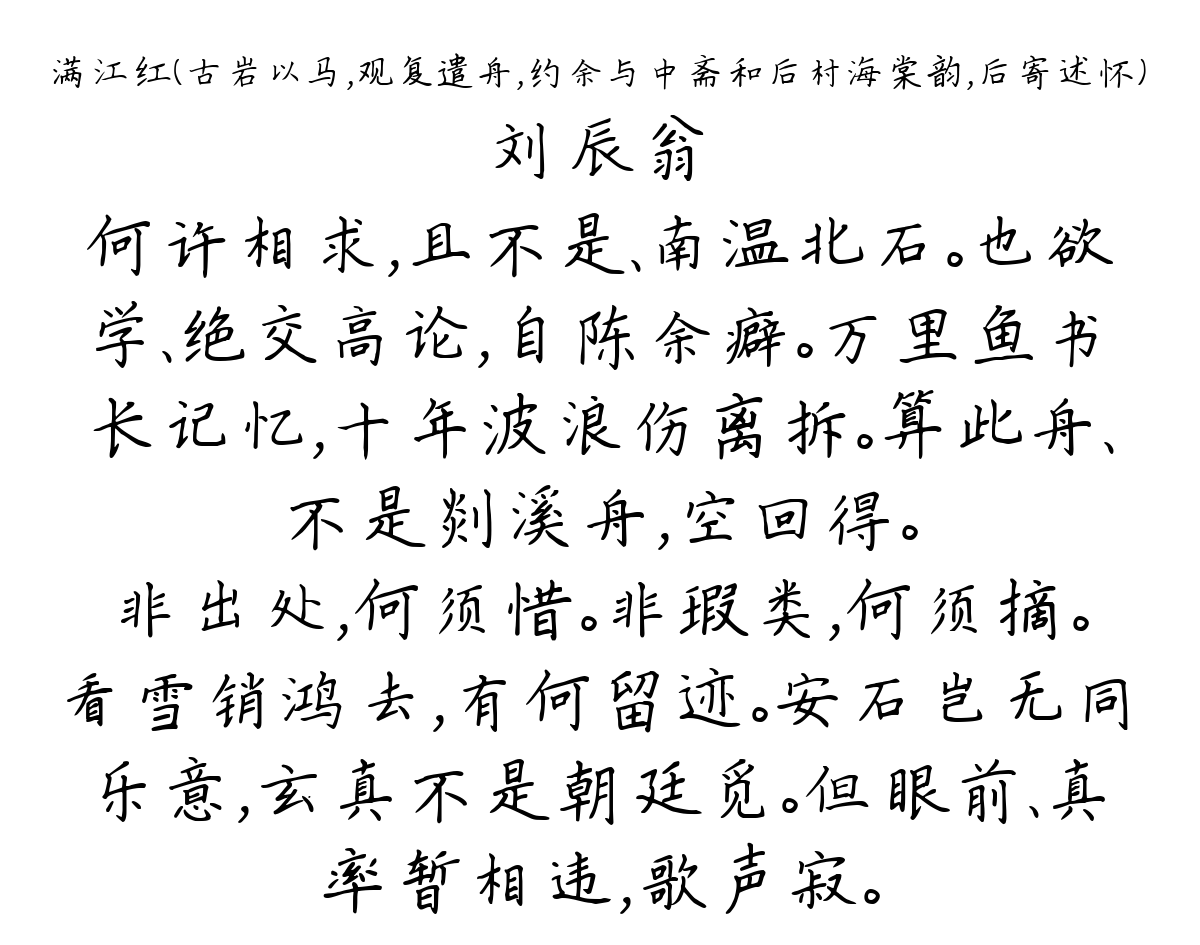 满江红(古岩以马,观复遣舟,约余与中斋和后村海棠韵,后寄述怀)
刘辰翁
何许相求,且不是、南温北石。也欲
学、绝交高论,自陈余癖。万里鱼书
长记忆,十年波浪伤离拆。算此舟、
不是剡溪舟,空回得。
非出处,何须惜。非瑕类,何须摘。
看雪销鸿去,有何留迹。安石岂无同
乐意,玄真不是朝廷觅。但眼前、真
率暂相违,歌声寂。